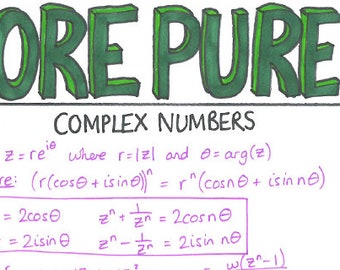 ORE PURE
COMPLEX NUMBERS
z = re^{iθ} where r = |z| and θ = arg(z)
re: (r(cosθ + isinθ))^n = r^n(cosθ + isin nθ)
= 2cosθ z^n + 1/z^n = 2cosnθ
= 2isinθ z^n - 1/z^n = 2isin nθ
w(z^n-1)